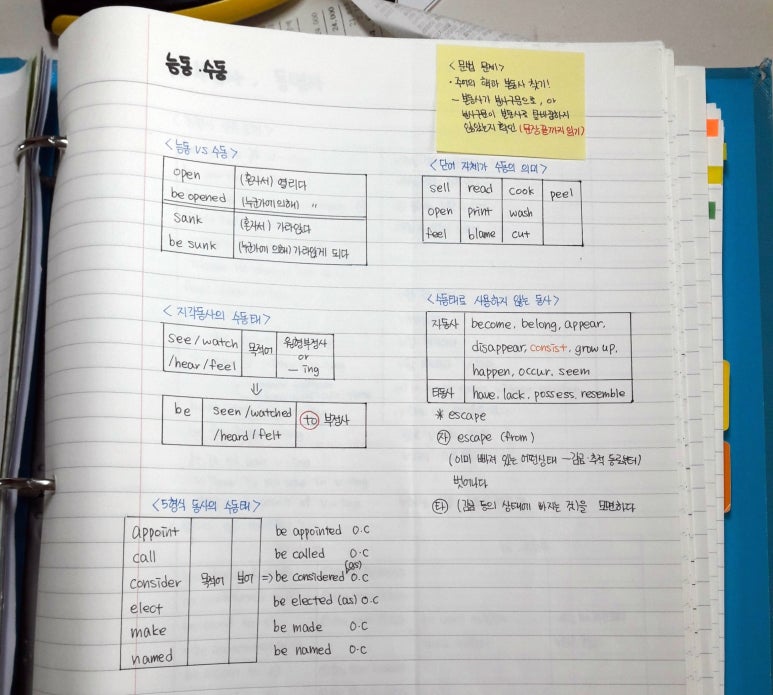 능동.수동
<문법 문제>
· 주어의 핵과 본동사 찾기!
- 본동사가 분사구문으로, or
분사구문이 본동사로 둔갑하지
않았는지 확인 (문장끝까지 읽기)
<능동 VS 수동>
open (혼자서) 열리다
be opened (누군가에 의해) "
sank (혼자서) 가라앉다
be sunk (누군가에 의해) 가라앉게 되다
<단어 자체가 수동의 의미>
sell read cook peel
open print wash
feel blame cut
<지각동사의 수동태>
see/watch 목적어 원형부정사
/hear/feel or
-ing
⇓
be seen/watched to 부정사
/heard/felt
<수동태로 사용하지 않는 동사>
자동사 become, belong, appear,
disappear, consist, grow up,
happen, occur, seem
타동사 have, lack, possess, resemble
* escape
자 escape (from)
(이미 빠져 있는 어떤상태 - 감금·추적 등로부터)
벗어나다
타 (감금 등의 상태에 빠지는 것)을 모면하다
<5형식 동사의 수동태>
appoint be appointed O.C
call be called O.C
consider 목적어 보어 => be considered (as) O.C
elect be elected (as) O.C
make be made O.C
named be named O.C